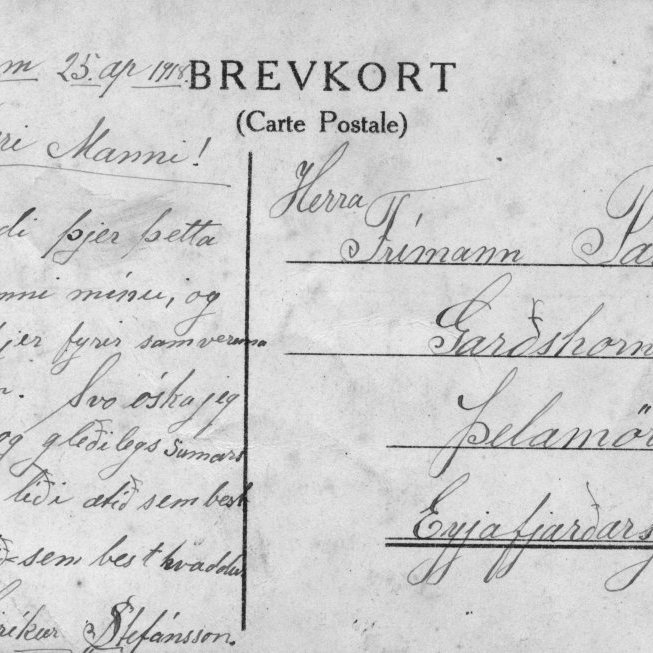 m 25. ap 1918.
BREVKORT
(Carte Postale)
ri Manni!
di þjer þetta
nni mínu, og
jer fyrir samveruna
Svo óska jeg
og gleðilegs sumars
líði ætíð sem best
sem best kvaddur
ríkur Stefánsson.
Herra
Frímann Pá
Garðshorn
Þelamör
Eyjafjarðars